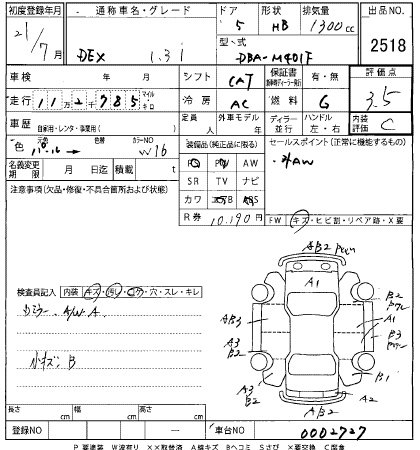 初度登録年月 通称車名・グレード ドア 形状 排気量 出品NO.
21/7月 DEX 1.3i 5 HB 1300cc 2518
型・式
DBA-M401F
車検 年 月 シフト CAT 保証書 有・無 評価点
走行 112千785 マイル キロ 冷房 AC 燃料 G 3.5
車歴 自家用・レンタ・事業用( ) 定員 人 外車モデル 年 ディーラー 並行 ハンドル 左・右 内装評価 C
色 元色 パール → 色替 カラーNO W16 装備品(純正品に限る) セールスポイント(正常に機能するもの)
PS PW AW ・社外AW
名義変更期限 月 日迄 積載 t SR TV ナビ
注意事項(欠品・修復・不具合箇所および状態) カワ エアB ABS
R券 10,190円 FW キズ・ヒビ割・リペア跡・X要
AB2
A1
B2
AB3
A1
B3
A3
B2
A3
B2
B1
A2
AB2
検査員記入 内装 キズ・汚レ・コゲ・穴・スレ・キレ
カラー A/W A
小キズ B
長さ cm 幅 cm 高さ cm
登録NO ー 車台NO 0002727
P 要塗装 W波有り ××取替済 A線キズ Bヘコミ Sさび ×要交換 C腐食